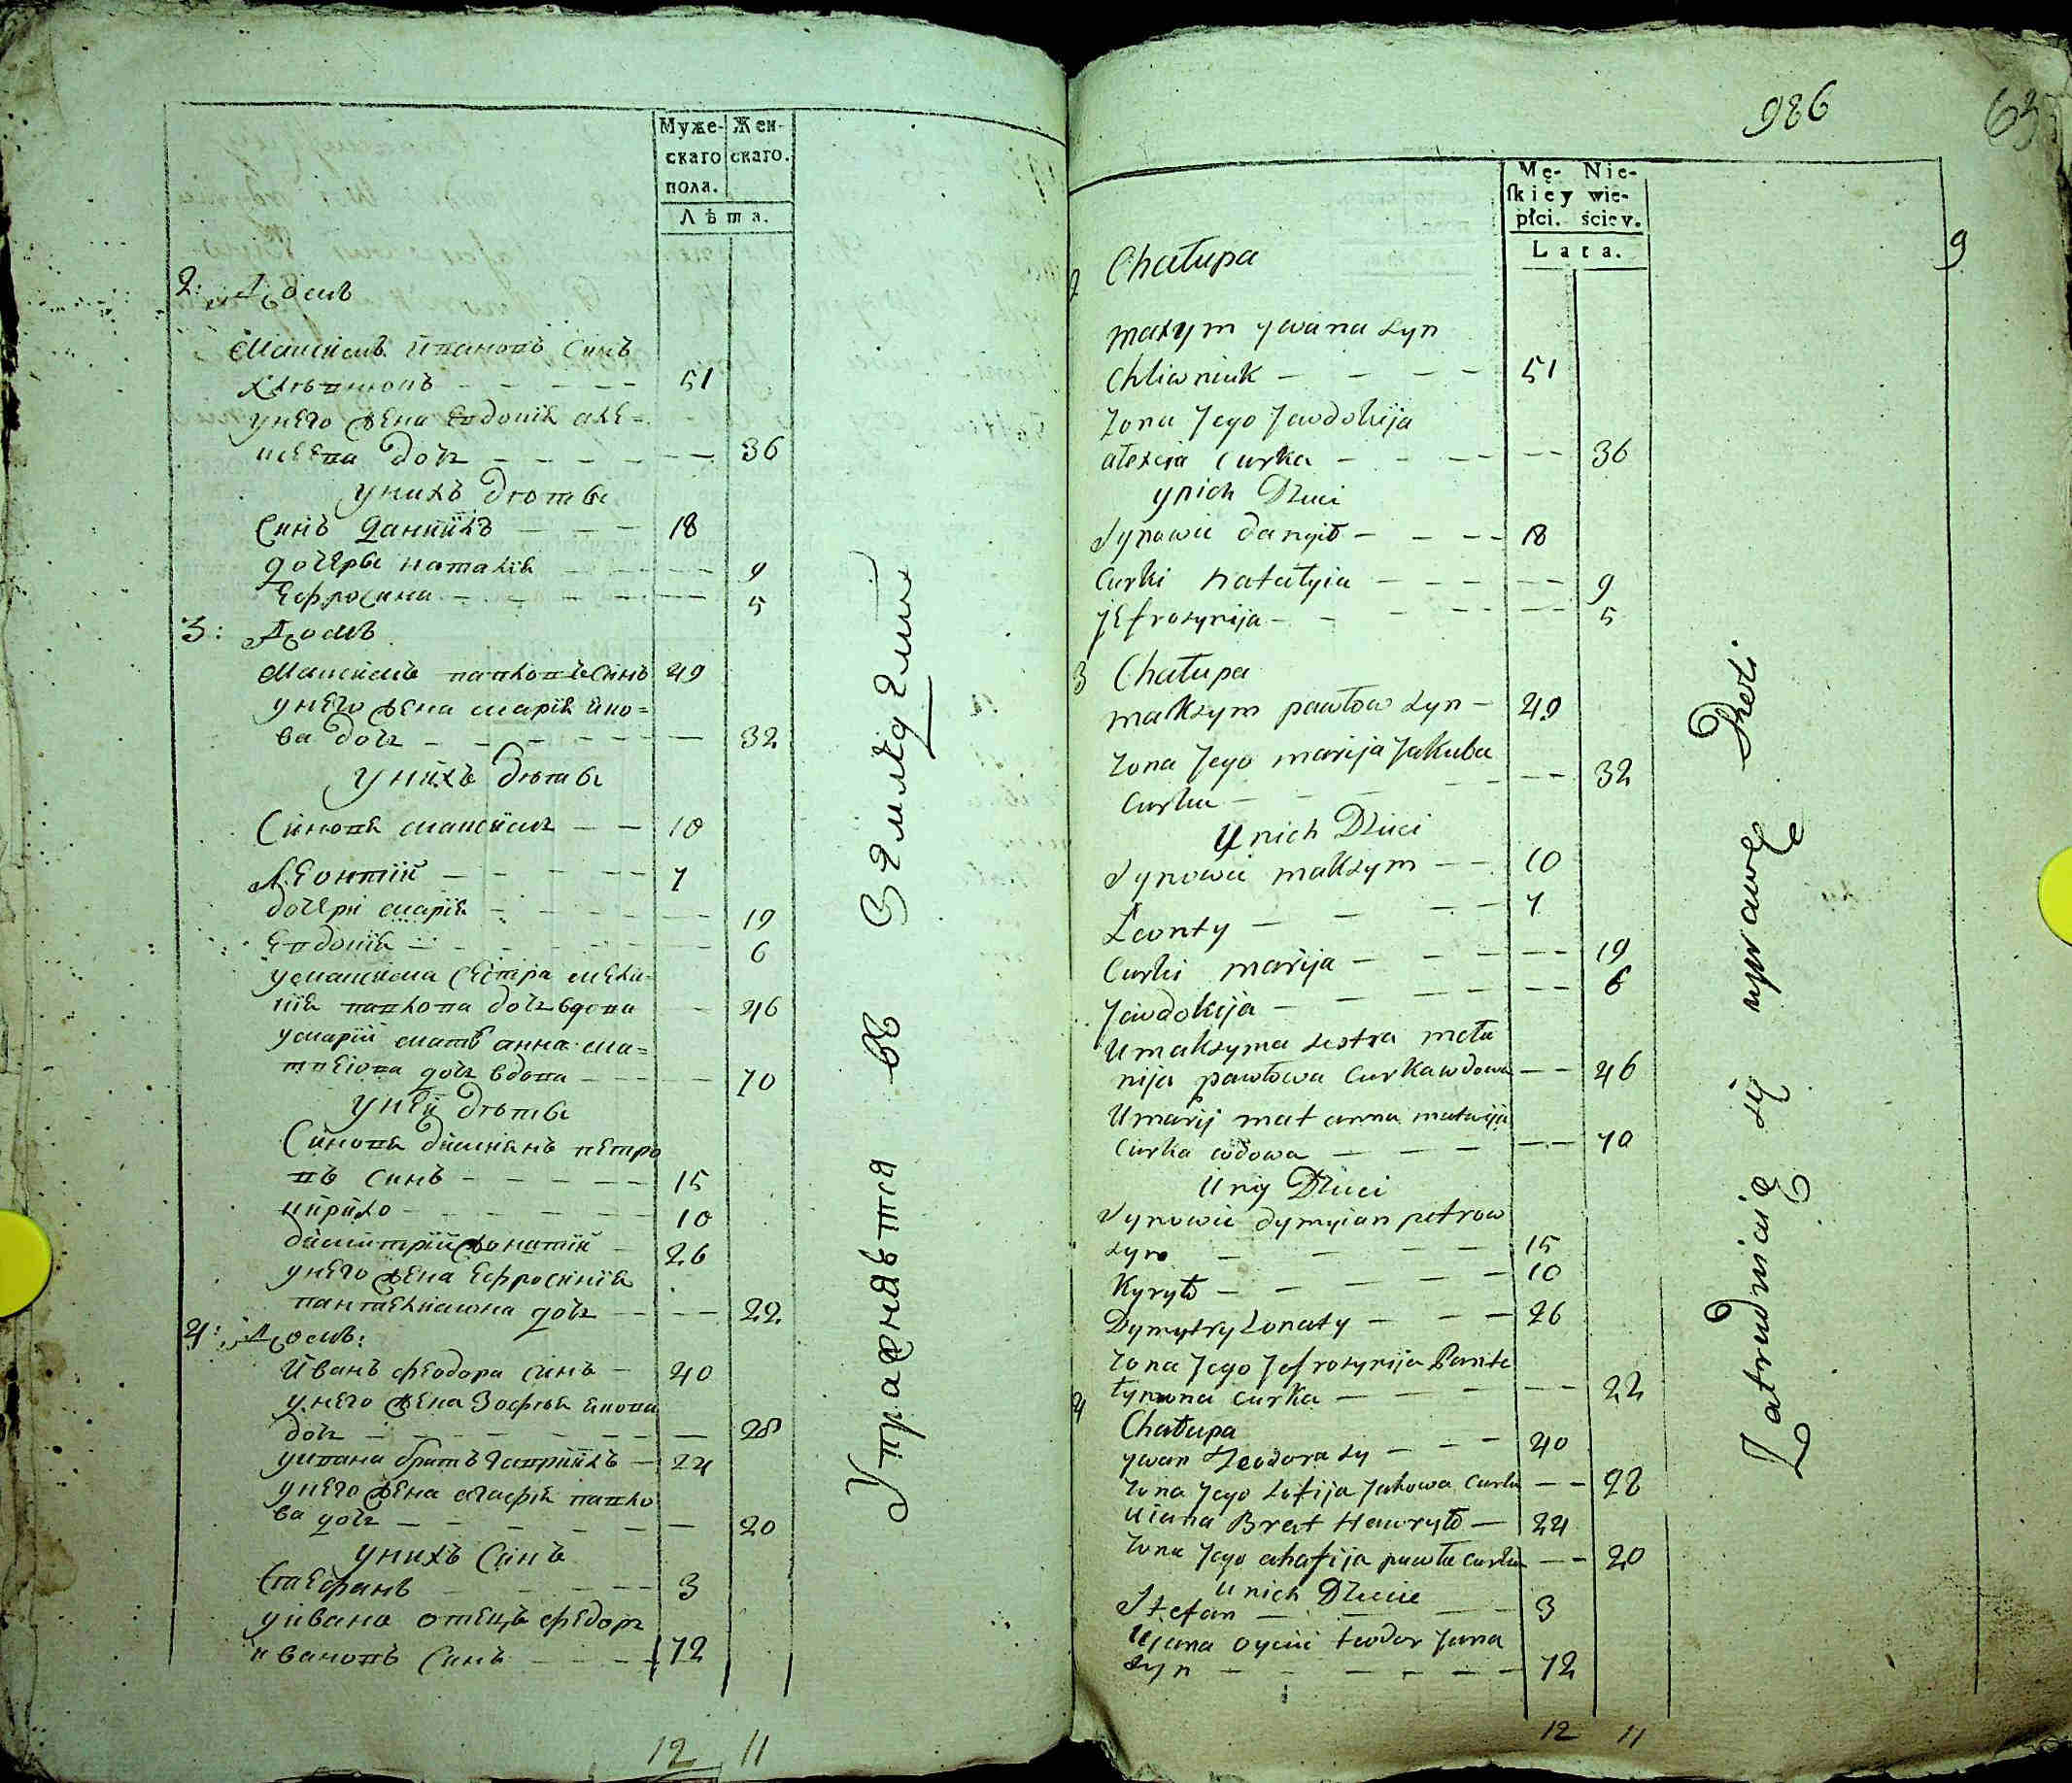 Муже- Жен-
скаго скаго.
пола.
Лѣта.
2: Домъ
Максимъ Ивановъ Синъ
Хлѣвнюкъ - - - - - 51
унего жена Евдокія але=
ксѣева дочь - - - - - - - 36
унихъ дѣти
Синъ Даниилъ - - - 18
дочеры наталія - - - - - 9
Ефросина - - - - - - 5
3: Домъ
Максимъ павловъ Синъ 49
унего жена марія яко=
ва дочь - - - - - - - 32
Унихъ дѣти
Синовя максимъ - - 10
Леонтій - - - - - 7
дочери марія - - - - - - 19
Евдокія - - - - - - 6
у максима Сестра мела-
нія павлова дочь вдова - 46
у маріи мать анна ма=
твеіова дочь вдова - - - - 70
Уней дѣти
Синовя димиянъ петро
въ Синъ - - - - - 15
кирило - - - - - - 10
димитрій жонатій - 26
унего жена Ефросинія
пантелимона дочь - - - - 22
4: Домъ:
Иванъ феодора Синъ - 40
унего жена Зофія якова
дочь - - - - - - - - 28
уивана братъ Гавриилъ - 24
унего жена агафія павло
ва дочь - - - - - - - 20
унихъ Синъ
Стефанъ - - - - 3
уивана отецъ федоръ
ивановъ Синъ - - - - 72
12 11
Упражняется въ Земледелии
986
63
9
Mę- Nie-
ſkiey wie-
płci. ściey.
Lata.
2 Chałupa
maxym ywana syn
Chliwniuk - - - - 51
Zona Jego Jewdokija
alexeia curka - - - - - - 36
ynich Dzieci
Synowie danyił - - - - 18
Curki natalyia - - - - - 9
jefrozynija - - - - - - 5
3 Chałupa
maksym pawłow syn - 49
Zona Jego marija Jakuba
Curka - - - - - 32
U nich Dzieci
Synowie maksym - - 10
Leonty - - - - 7
Curki marija - - - - - - 19
Jewdokija - - - - - - 6
U maksyma sestra meła
nija pawłowa curka wdowa - - 46
U maryi mat anna matwija
Curka wdowa - - - - - - 70
U niy Dzieci
Synowie dymyian petrow
syn - - - - 15
Kyryło - - - - - 10
Dymytry żonaty - - - 26
Zona Jego Jefrozynija Pante
łymona curka - - - - - - 22
4 Chałupa
ywan Teodora sy - - - 40
Zona Jego Zofija Jakowa Curka - - 28
U iana Brat Hawryło - 24
Zona Jego ahafija pawła curka - - 20
U nich Dziecie
Stefan - - - - 3
U Jana oyciec teodor Jana
syn - - - - - - 72
12 11
Zatrudniaią się uprawą Roli